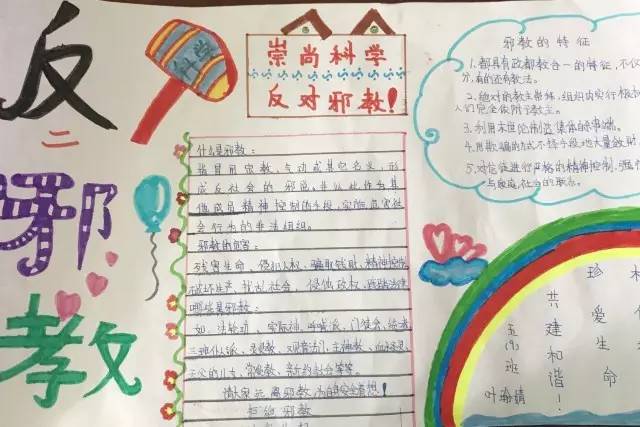 反
二
邪
教
科学
崇尚科学
反对邪教!
什么是邪教:
指冒用宗教、气功或其它名义,形
成反社会的邪说,并以此作为其
他成员精神控制的手段,实施危害社
会行为的非法组织。
邪教的危害:
残害生命、侵犯人权、骗取钱财、精神控制
破坏生产、扰乱社会、侵蚀政权、践踏法律
哪些是邪教:
如:法轮功、实际神、呼喊派、门徒会、统一教
三班仆人派、灵灵教、观音法门、主神教、
天父的儿女、常受教、新约教会等等。
请大家远离邪教,为的安全着想!
拒绝邪教
邪教的特征
1、都具有政教合一的特征,不仅
分,有的还有教法。
2、绝对的教主崇拜,组织内实行
人们完全依附于教主。
3、利用末世论制造集体的
4、用欺骗的方式不择手段地大量敛财
5、对信徒进行严格的精神控制,
与家庭、社会的联系。
珍爱生命
共建和谐!
五(9)班
叶瀚婧